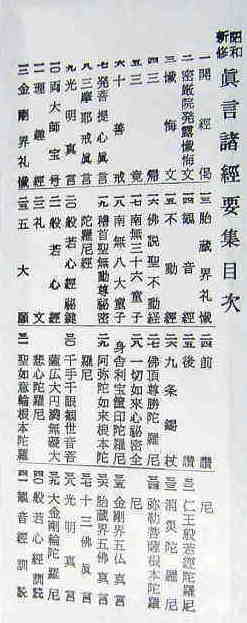 昭和新修 眞言諸經要集目次
一 開經偈
二 密厳院発露懺悔文
三 懺悔文
四 三帰
五 三竟
六 十善戒
七 発菩提心眞言
八 三摩耶戒眞言
九 光明眞言
一〇 両大師宝号
一一 理趣經
一二 金剛界礼懺
一三 胎蔵界礼懺
一四 観音經
一五 不動經
一六 佛説聖不動経
一七 南無三十六童子
一八 南無八大童子
一九 稽首聖無動尊秘密
陀羅尼經
二〇 般若心經秘鍵
二一 般若心經
二二 三礼文
二三 五大願
二四 前讃
二五 後讃
二六 九条錫杖
二七 佛頂尊勝陀羅尼
二八 一切如来心秘密全
身舎利宝篋印陀羅尼
二九 阿弥陀如来根本陀
羅尼
三〇 千手千眼観世音菩
薩広大円満無礙大
悲心陀羅尼
三一 聖如意輪根本陀羅
尼
三二 仁王般若経陀羅尼
三三 消災陀羅尼
三四 弥勒菩薩根本陀羅
尼
三五 金剛界五仏真言
三六 胎蔵界五佛真言
三七 十三佛真言
三八 光明真言
三九 大金剛輪陀羅尼
四〇 般若心經訓読
四一 観音經訓読